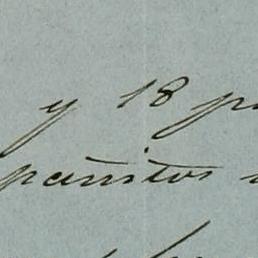 y 18 p
pañitos